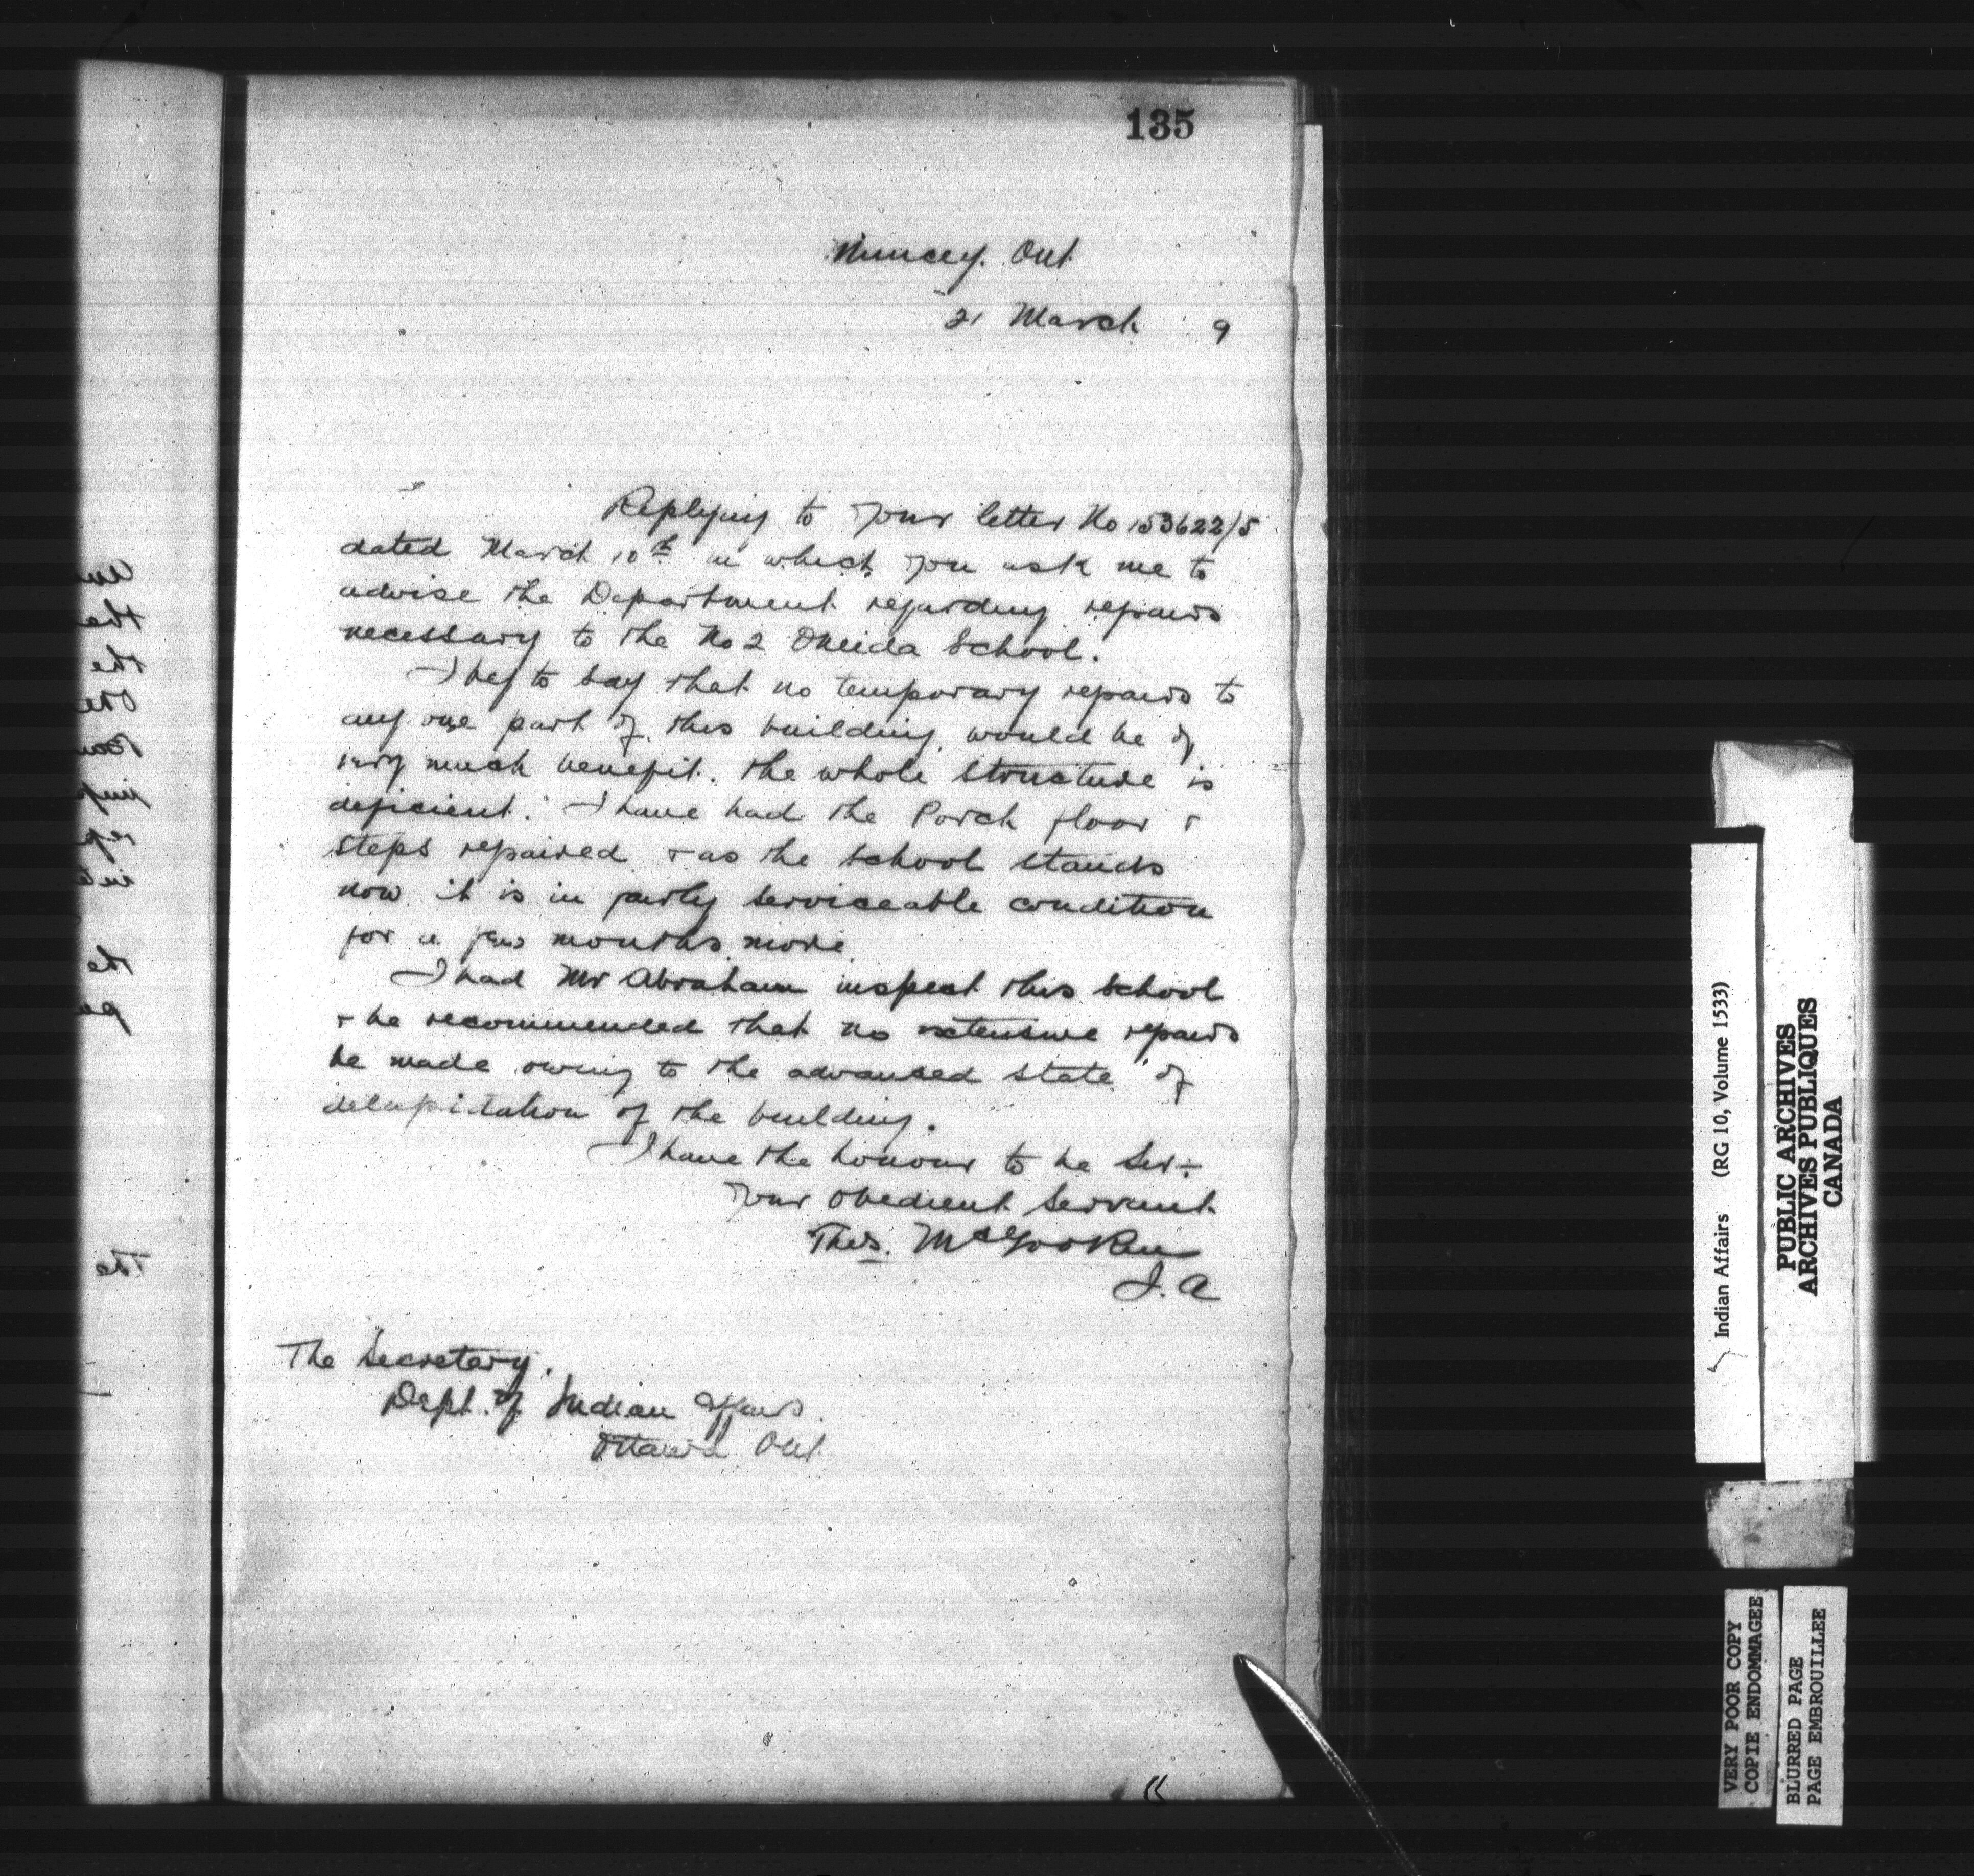 135
Muncey. Ont
21 March 9
Replying to your letter No 153622/5
dated March 10th in which you ask me to
advise the Department regarding repairs
necessary to the No 2 Oneida School.
I beg to say that no temporary repairs to
any one part of this building would be of
very much benefit. The whole structure is
deficient. I have had the Porch floor &
steps repaired & as the school stands
now it is in fairly serviceable condition
for a few months more.
I had Mr Abraham inspect this school
& he recommended that no extensive repairs
be made owing to the advanced state of
delapidation of the building.
I have the honour to be Sir:
Your obedient Servant
Thos. McGookin
I. A
The Secretary.
Dept. of Indian Affairs.
Ottawa Ont
Indian Affairs (RG 10, Volume 1533)
PUBLIC ARCHIVES
ARCHIVES PUBLIQUES
CANADA
VERY POOR COPY
COPIE ENDOMMAGEE
BLURRED PAGE
PAGE EMBROUILLEE